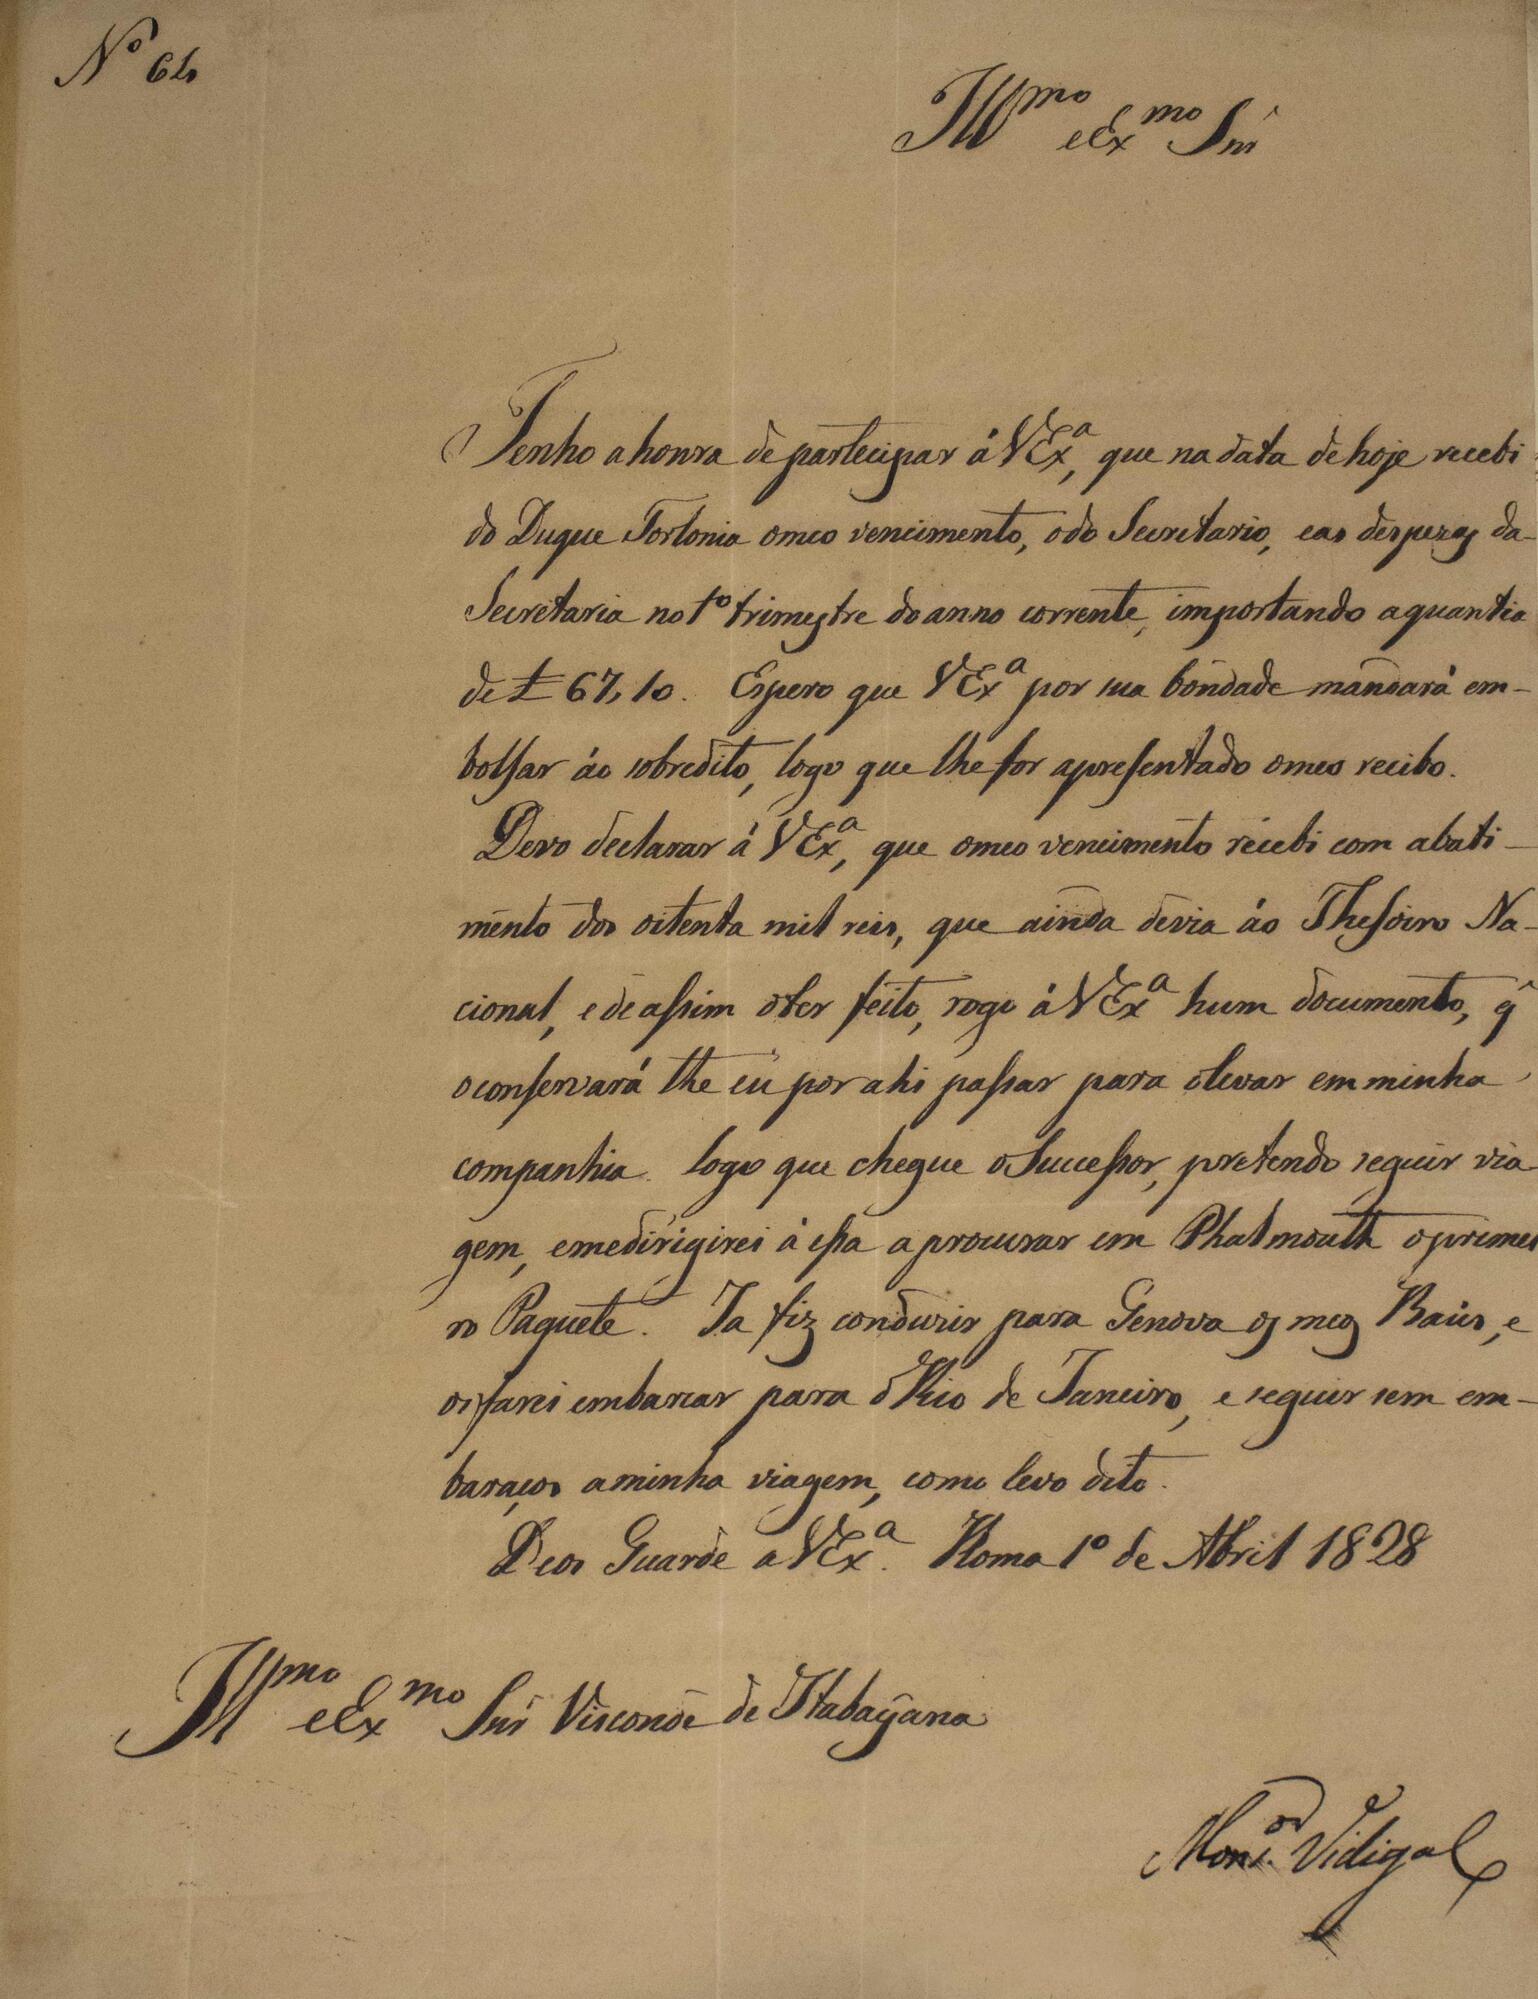 Nº 64
Illmo e Exmo Snr
Tenho a honra de partecipar á VExª, que na data de hoje recebi
do Duque Torlonia o meo vencimento, o do Secretario, e as despezas da
Secretaria no 1º trimestre do anno corrente, importando a quantia
de £ 67,10. Espero que VExª por sua bondade mandará em-
bolsar áo sobredito, logo que lhe for apresentado o meo recibo.
Devo declarar á VExª, que o meo vencimento recebi com abati-
mento dos oitenta mil reis, que ainda devia áo Thesoiro Na-
cional, e de assim o ter feito, rogo á VExª hum documento, q̂
o conservará the eu por ahi passar para o levar em minha
companhia. Logo que chegue o Successor, pretendo seguir via
gem, e me dirigirei á essa a procurar em Phalmouth o primei
ro Paquete. Ja fiz conduzir para Genova os meos Baús, e
os farei embarcar para o Rio de Janeiro, e seguir sem em-
baraços a minha viagem, como levo dito.
Deos Guarde a VExª. Roma 1º de Abril 1828
Illmo e Exmo Snr Visconde de Itabayana
Monsor. Vidigal